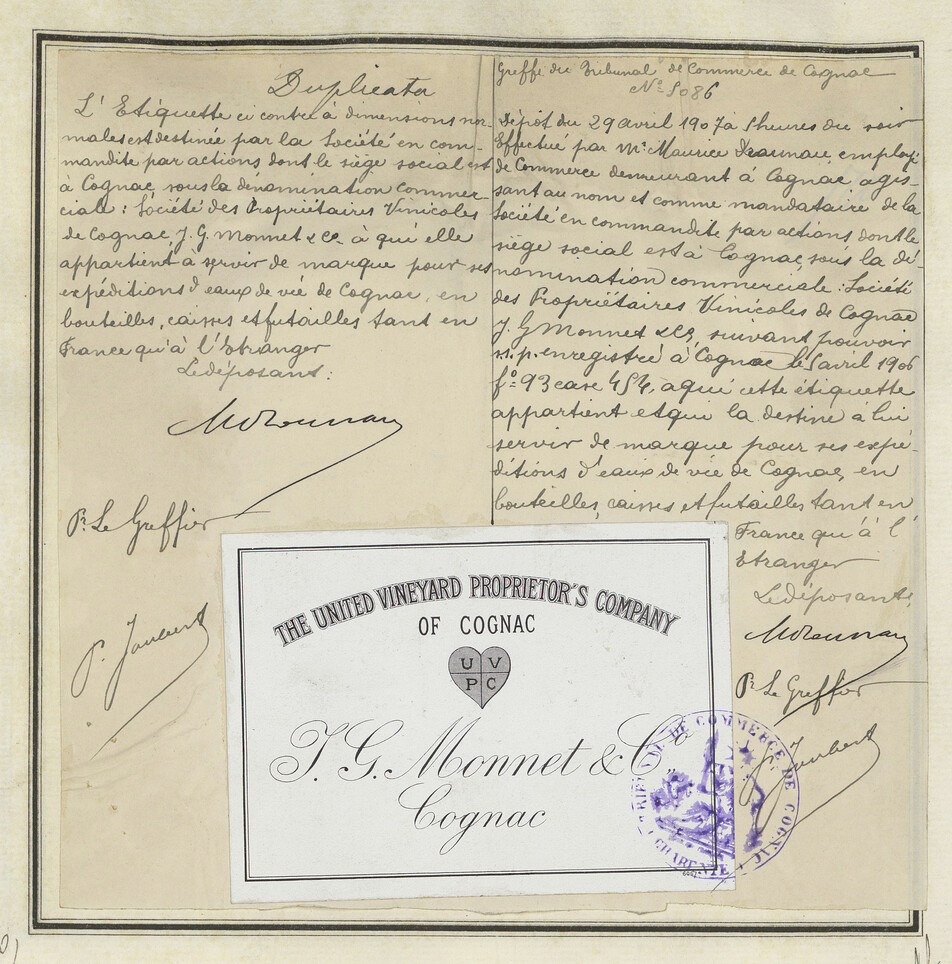 Duplicata
L'Etiquette ci contre à dimensions nor-
males est destinée par la Société en com-
mandite par actions dont le siège social est
à Cognac, sous la dénomination commer-
ciale: Société des Propriétaires Vinicoles
de Cognac, J. G. Monnet & Co. à qui elle
appartient à servir de marque pour ses
expéditions d'eaux de vie de Cognac, en
bouteilles, caisses et futailles tant en
France qu'à l'Etranger
Le déposant:
Pr. Le Greffier
P. Joubert
Greffe du Tribunal de Commerce de Cognac
No. 5086
Dépôt du 29 avril 1907 à 5 heures du soir
Effectué par Mr. Maurice employé
de Commerce demeurant à Cognac, agis-
sant au nom et comme mandataire de la
Société en commandite par actions dont le
siège social est à Cognac, sous la dé-
nomination commerciale: Société
des Propriétaires Vinicoles de Cognac
J. G Monnet & Co, suivant pouvoir
s.s.p. enregistré à Cognac le 5 avril 1906
fo. 93 case 454, à qui cette étiquette
appartient et qui la destine à lui
servir de marque pour ses expé-
ditions d'eaux de vie de Cognac, en
bouteilles, caisses et futailles tant en
France qu'à l'
Etranger
Le déposant:
Pr Le Greffier
P. Joubert
THE UNITED VINEYARD PROPRIETOR'S COMPANY
OF COGNAC
U V
P C
J. G. Monnet & Co.
Cognac
TRIBUNAL DE COMMERCE DE COGNAC
(CHARENTE)